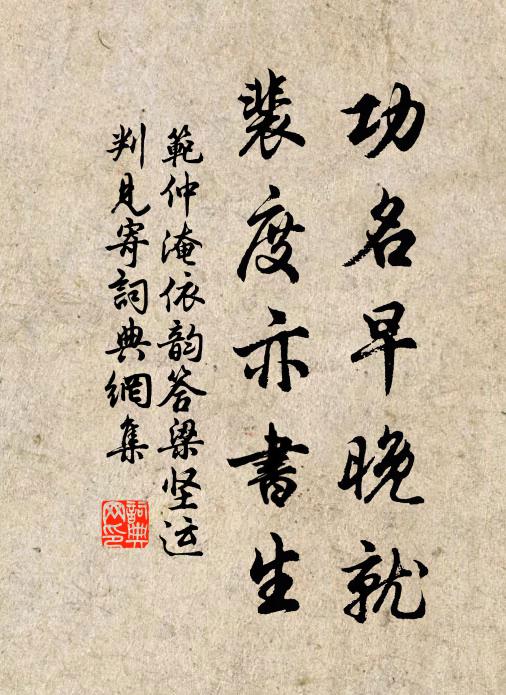 功名早晚就
裴度亦書生
範仲淹依韵答梁坚运
判見寄詞典網集
詞典網印